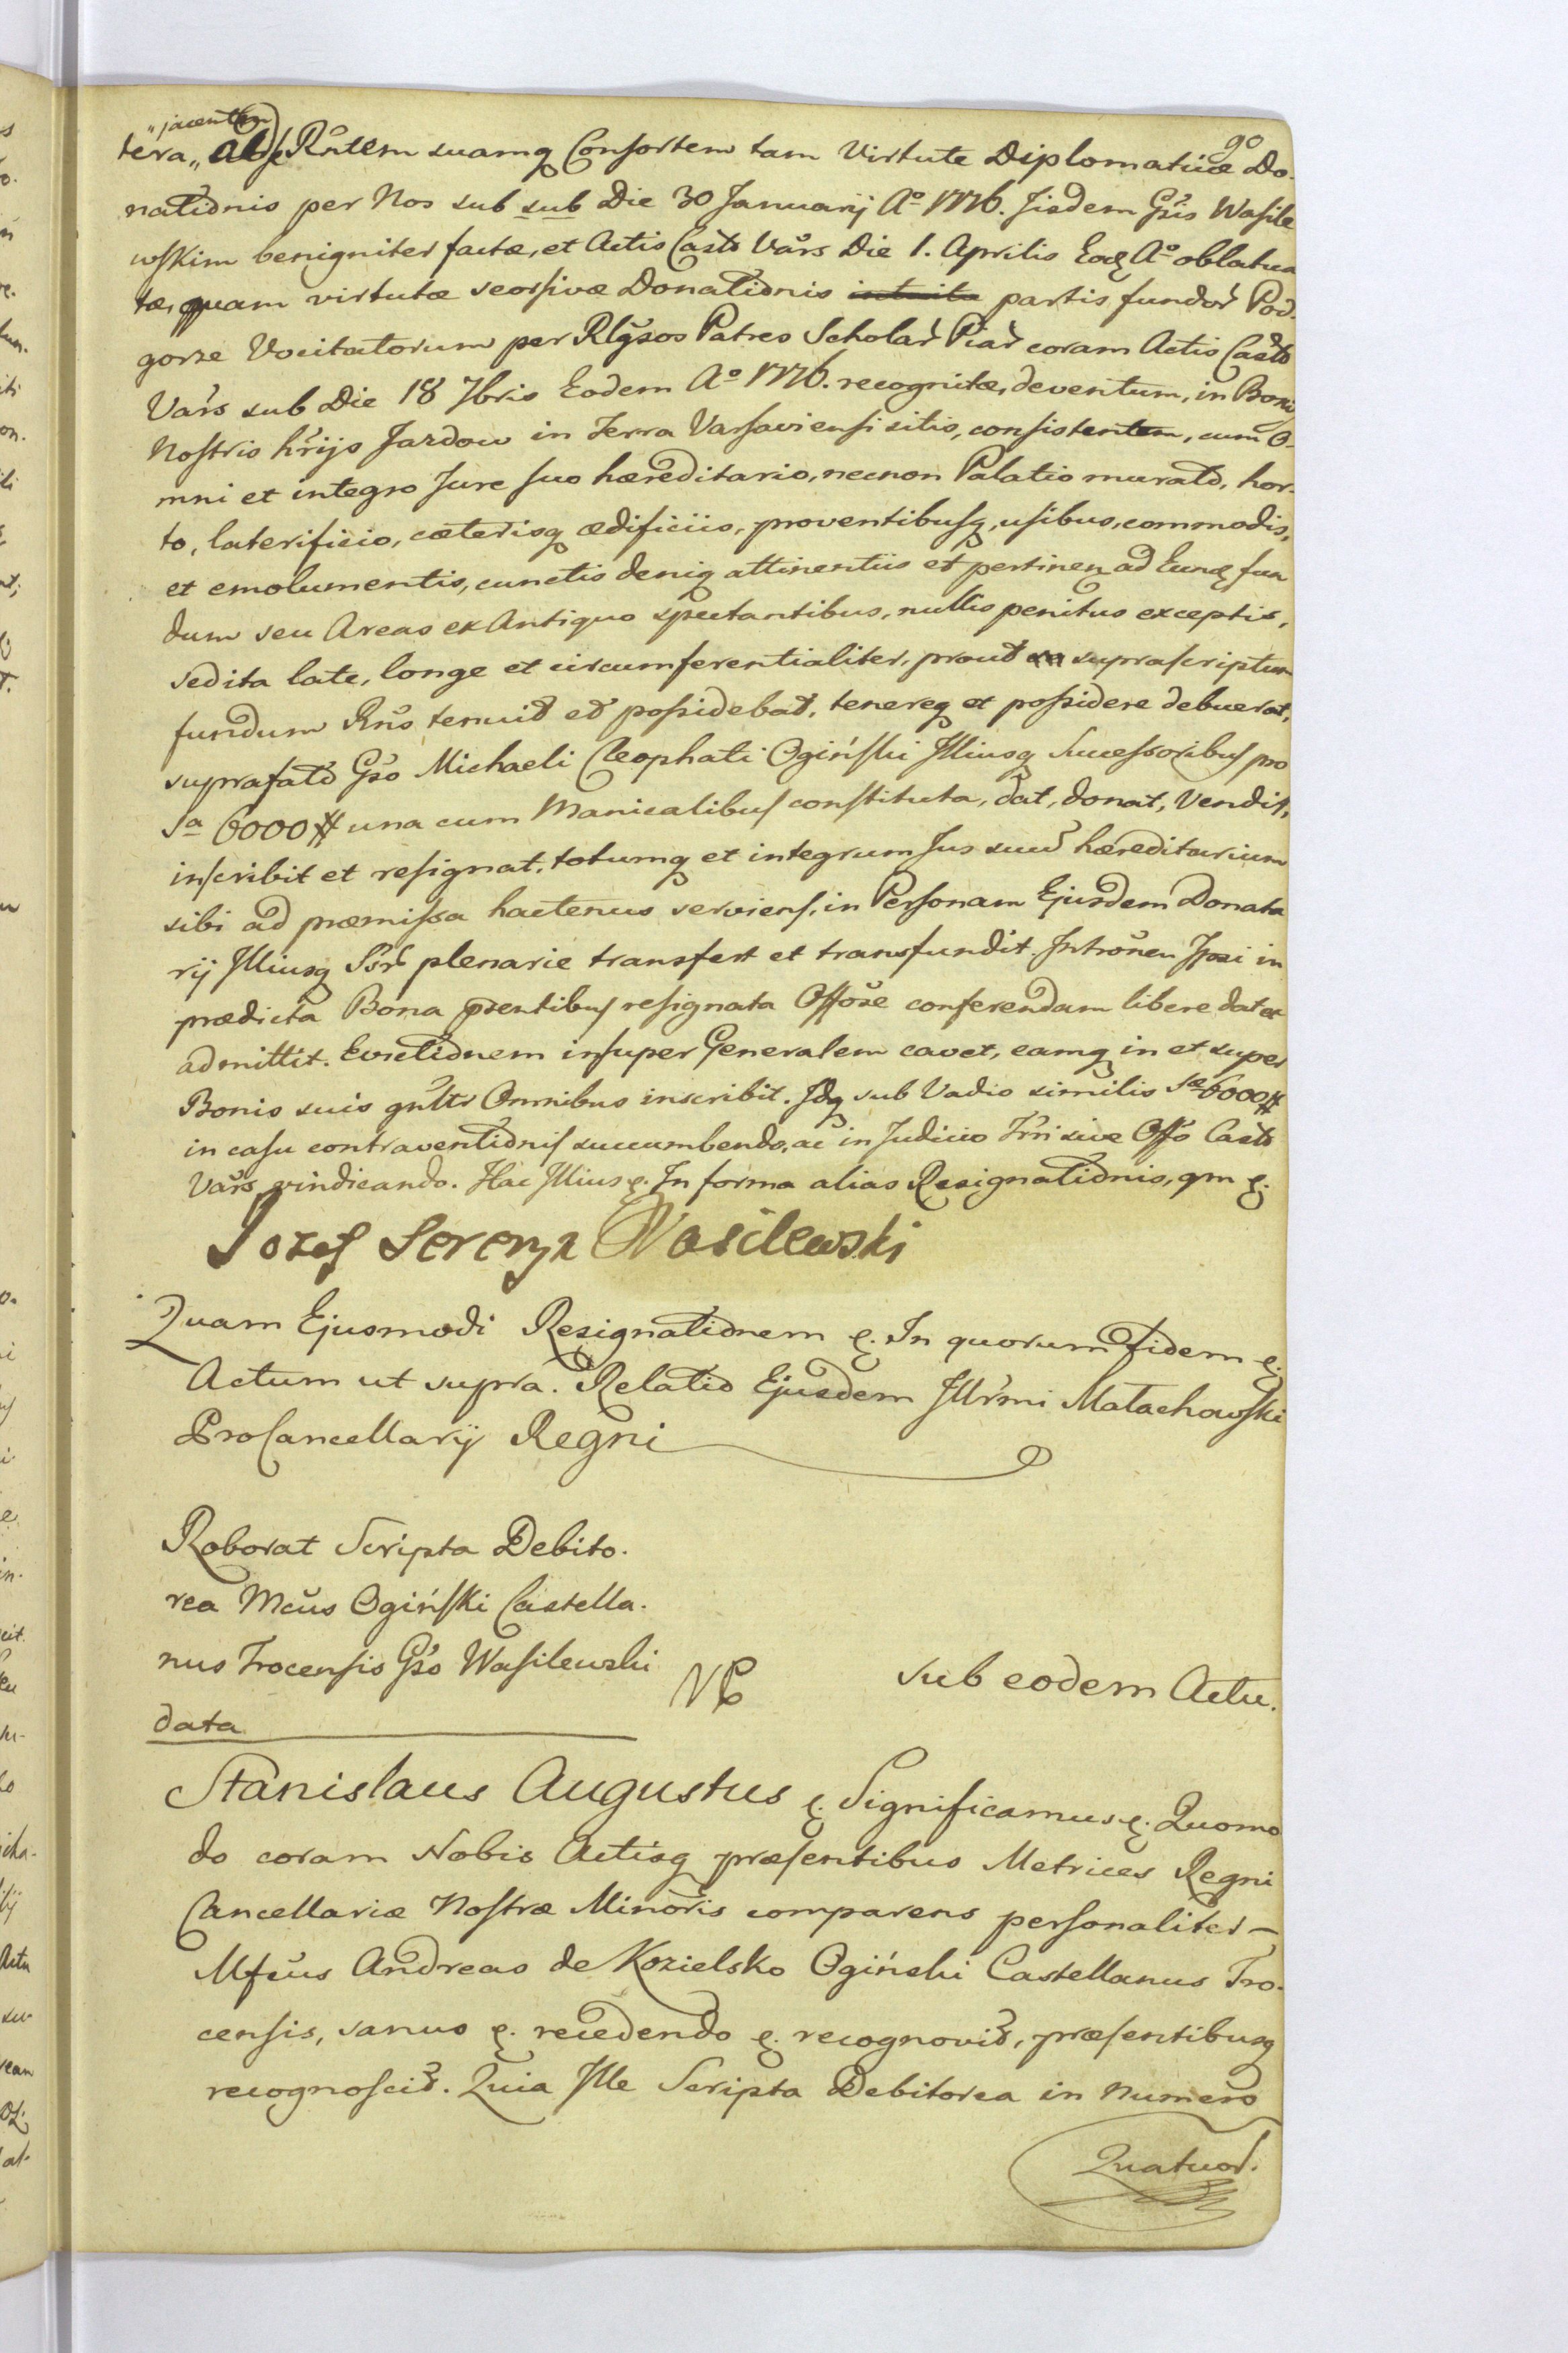 90
"jacentem
tera,, ad se Rñtem suamq Consortem tam Virtute Diplomaticæ Do-
nationis per Nos sub sub Die 30 Januarij Aº 1776. Iisdem Gsis Wasile
wskim benigniter factæ, et Actis Casts Vars Die 1. Aprilis Eoq Aº oblatua
tæ, quam virtute seorsivæ Donationis partis fundor Pod-
gorze Vocitatorum per Rlgsos Patres Scholar Piar coram Actis Casts
Vars sub Die 18 7bris Eodem Aº 1776. recognitæ, deventum, in Bonis
Nostris hrijs Jazdow in Terra Varsaviensi sitis, consistentem, cum o-
mni et integro Jure suo hæreditario, necnon Palatio murato, hor-
to, laterificio, cæterisq ædificiis, proventibusq, usibus, commodis,
et emolumentis, cunctis deniq attinentiis et pertinen ad Eunq fun
dum seu Areas ex Antiquo spectantibus, nullis penitus exceptis,
sed ita late, longe et circumferentialiter, prout suprascriptum
fundum Rns tenuit et possidebat, tenereq et possidere debuerat,
suprafato Gso Michaeli Cleophati Ogiński Illiusq Successoribus pro
Sa 6000 # una cum Manicalibus constituta, dat, donat, vendit,
inscribit et resignat, totumq et integrum Jus suum hæreditarium
sibi ad præmissa hactenus serviens, in Personam Ejusdem Donata
rij Illiusq Ssr plenarie transfert et transfundit. Intronen Ipsi in
prædicta Bona psentibus resignata Offose conferendam libere dat et
admittit. Evictionem insuper Generalem cavet, eamq in et super
Bonis suis gnltr Omnibus inscribit. Idq sub Vadio similis Sæ 6000 #
in casu contraventionis succumbendo, ac in Judicio Trri sive Offo Casts
Vars vindicando. Hac Illius &. In forma alias Resignationis, qm &.
Jozef Serenyz Wasilewski
Quam Ejusmodi Resignationem &. In quorum fidem &.
Actum ut supra. Relatio Ejusdem Illrmi Małachowski
ProCancellarij Regni
Roborat Scripta Debito-
rea Mcus Ogiński Castella-
nus Trocensis Gso Wasilewski
data
sub eodem Actu.
Stanislaus Augustus &. Significamus &. Quomo
do coram Nobis Actisq præsentibus Metrices Regni
Cancellariæ Nostræ Minoris comparens personaliter –
Mfcus Andreas de Kozielsko Ogiński Castellanus Tro-
censis, sanus &. recedendo &. recognovit, præsentibusq
recognoscit. Quia Ille Scripta Debitorea in numero
Quatuor.